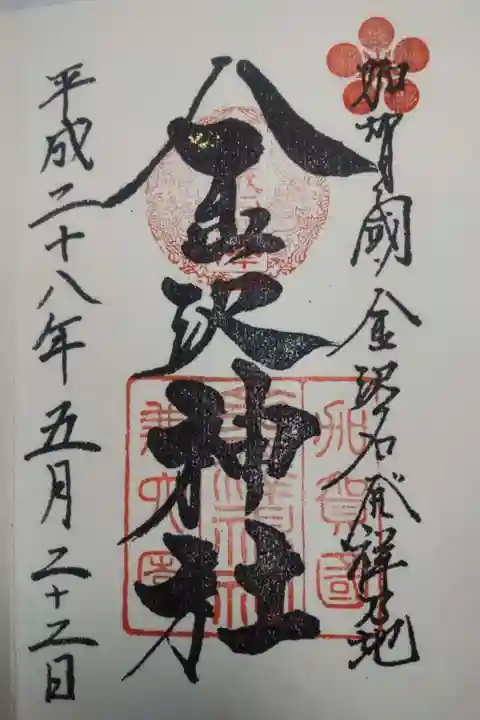 加賀國金沢名発祥之地
金沢神社
加賀國
金澤神社
兼六園
平成二十八年五月二十二日